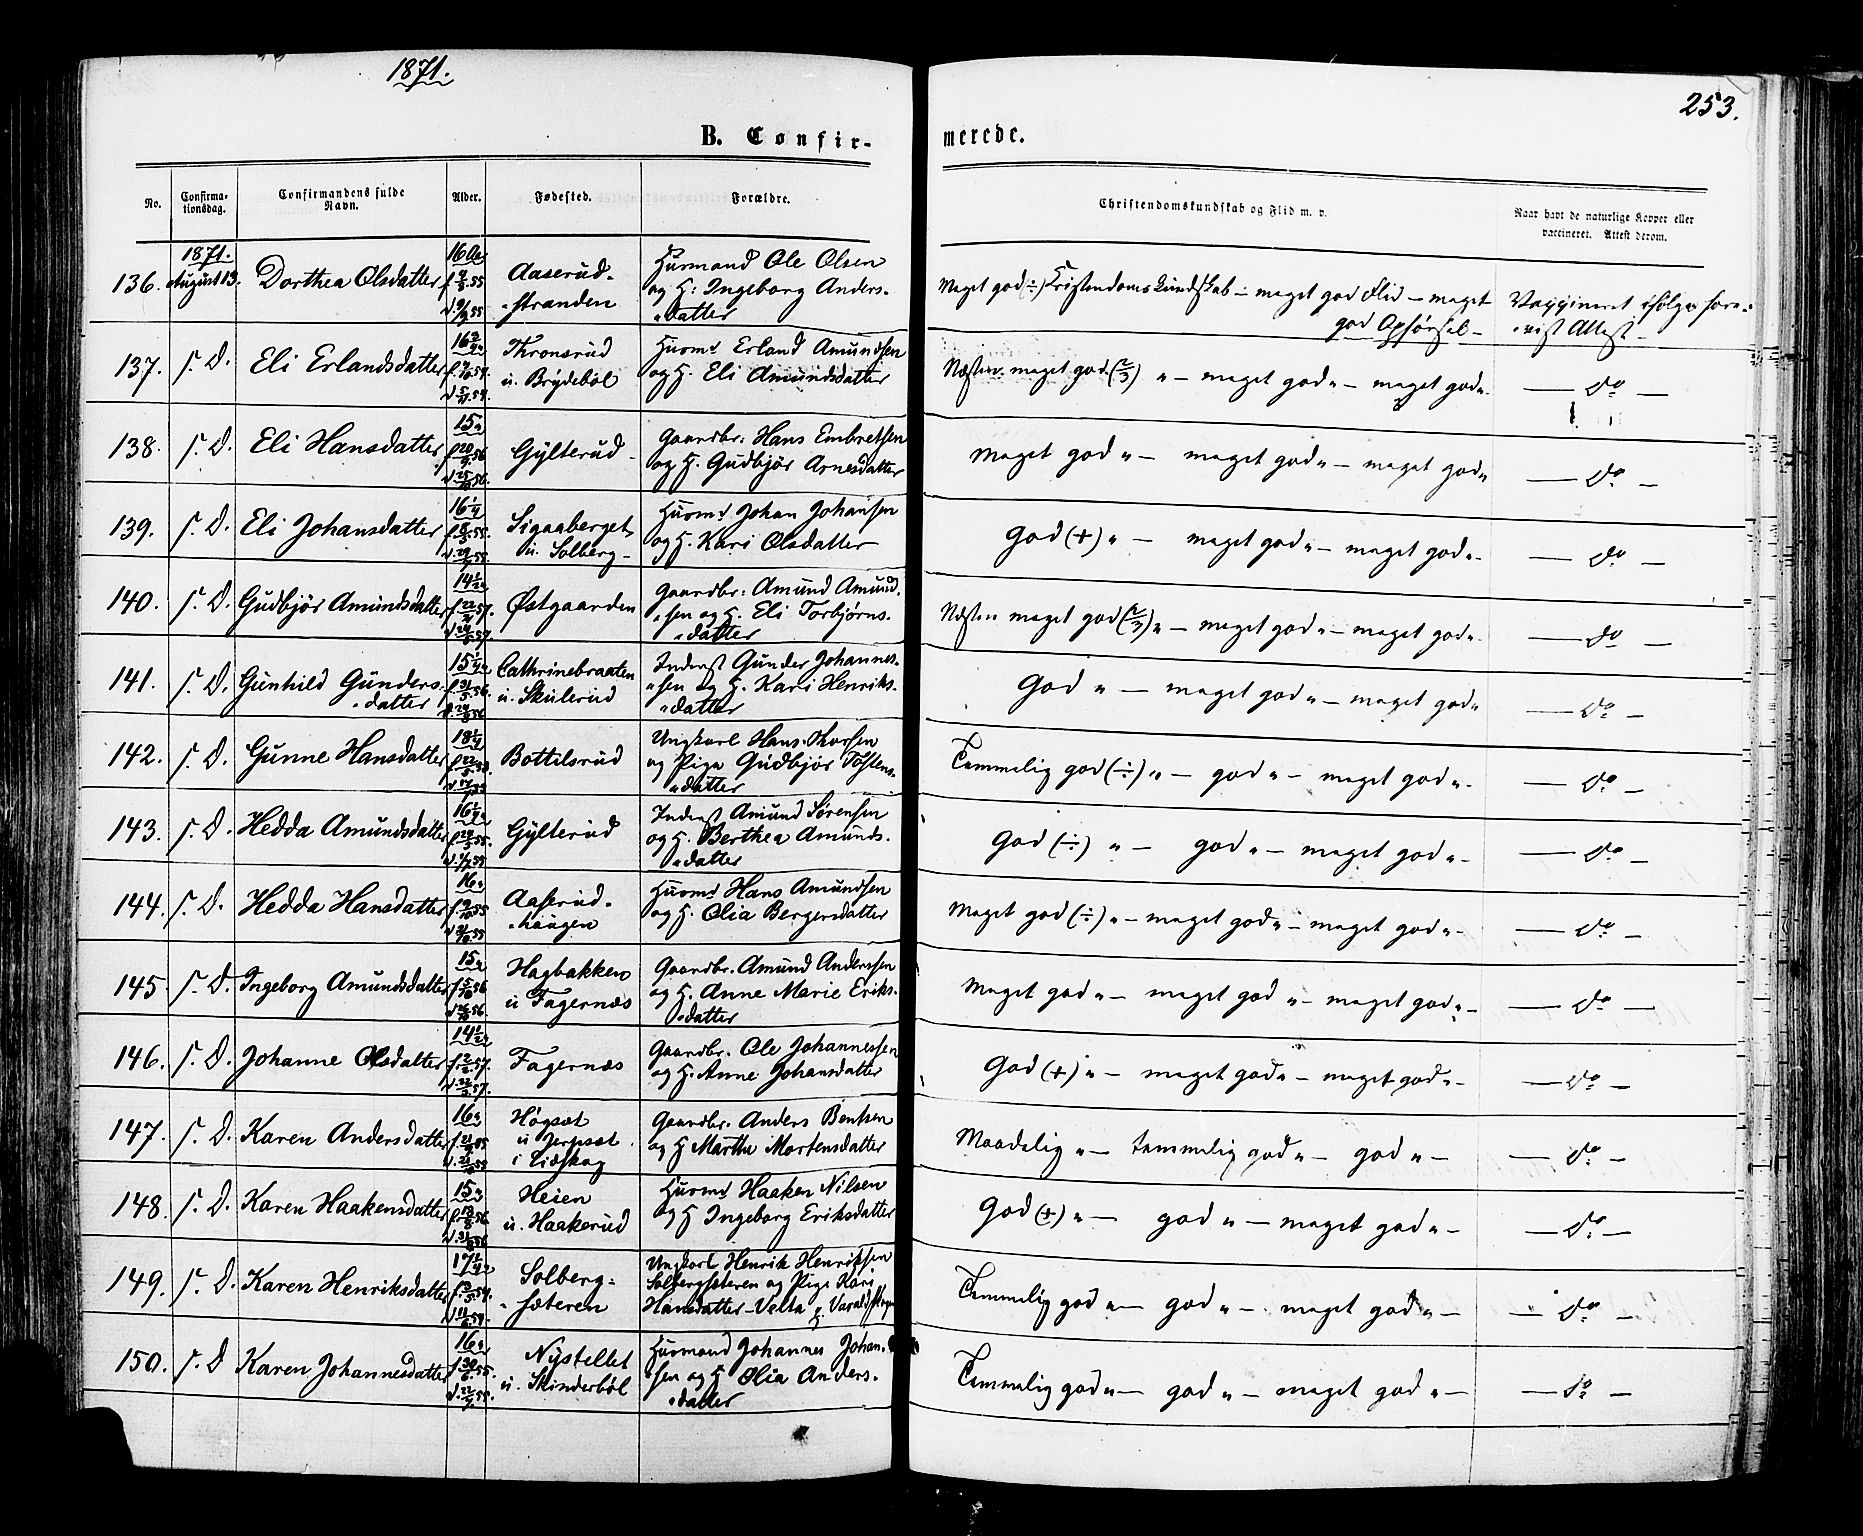 1871.
253.
B. Confir-
merede.
No.
Confirma-
tionsdag.
Confirmandens fulde
Navn.
Alder.
Fødested.
Forældre.
Christendomskundskab og Flid m. v.
Naar havt de naturlige Kopper eller
vaccineret. Attest derom.
1871.
136. August 13. Dorthea Olsdatter 16 Aar Aaserud-
-stranden
Husmand Ole Olsen
og H: Ingeborg Anders-
-datter
Meget god (÷) Kristendomskundskab - meget god Flid - meget
god Opførsel -
Vaxxineret ifølge fore-
-vist Attest -
137. s. D. Eli Erlandsdatter Thronsrud
u. Brÿdeböl
Husmd Erland Amundsen
og H. Eli Amundsdatter
Næsten meget god (2/3) " - meget god " - meget god ".
— do —
138. s. D. Eli Hansdatter 15 a Gÿlterud -
Gaardbr: Hans Embretsen
og H. Gudbjör Arnesdatter
meget god " - meget god " - meget god "
— do —
139. s. D. Eli Johansdatter 16 1/4 Sigaaberget
u. Solberg -
Husmd Johan Johansen
og H. Kari Olsdatter
God (+) " - meget god " - meget god " -
— do —
140. s. D. Gudbjör Amundsdatter Østgaarden
Gaardbr: Amund Amund-
-sen og H. Eli Torbjørns-
-datter
Næsten meget god (2/3) " - meget god " - meget god " -
— do —
141. s. D. Gunhild Gunders-
-datter
15 1/4 a Cathrinebraaten
u. Skulerud
Inderst Gunder Johannes-
-sen og H. Kari Henriks-
-datter
God " - meget god " - meget god "
— do —
142. s. D. Gunne Hansdatter 18 1/4 Bottilsrud
Ungkarl Hans
og Pige Gudbjör Tostens-
-datter
Temmelig god (÷) " - god " - meget god " -
— do —
143. s. D. Hedda Amundsdatter Gÿlterud
Inderst Amund Sørensen
og H. Berthea Amunds-
-datter
God (÷) " - god " - meget god " -
— do —
144. s. D. Hedda Hansdatter 16 a Aaserud-
-haugen
Husmd Hans Amundsen
og H. Olia Bergersdatter
Meget god (÷) " - meget god " - meget god " -
— do —
145 s. D. Ingeborg Amundsdatter 15 a Hagbakken
u Fagernæs
Gaardbr. Amund Anderssen
og H. Anne Marie Eriks-
-datter
Meget god " - meget god " - meget god " -
— do —
146. s. D. Johanne Olsdatter Fagernæs
Gaardbr. Ole Johannessen
og H. Anne Johansdatter
God (+) " - meget god " - meget god " -
— do —
147. s. D. Karen Andersdatter 16 a Högsæt
u
i Eidskog
Gaardbr. Anders Bentsen
og H Marthe Mortensdatter
Maadelig " - temmelig god " - god " -
— do —
148. s. D. Karen Haakensdatter 15 a Heien
u. Haakerud
Husmd Haaken Nilsen
og H Ingeborg Eriksdatter
God (+) " - god " - meget god " -
— do —
149. s. D. Karen Henriksdatter Solberg-
-sæteren
Ungkarl Henrik Henriksen
Solbergsæteren og Pige Kari
Hansdatter - Velta
Temmelig god " - god " - meget god " -
— do —
150. s. D Karen Johannesdatter 16 a Nÿstellet
u. Skinderböl
Husmand Johannes Johan-
-sen og H Olia Anders-
-datter
Temmelig god " - god " - meget god " -
— do —